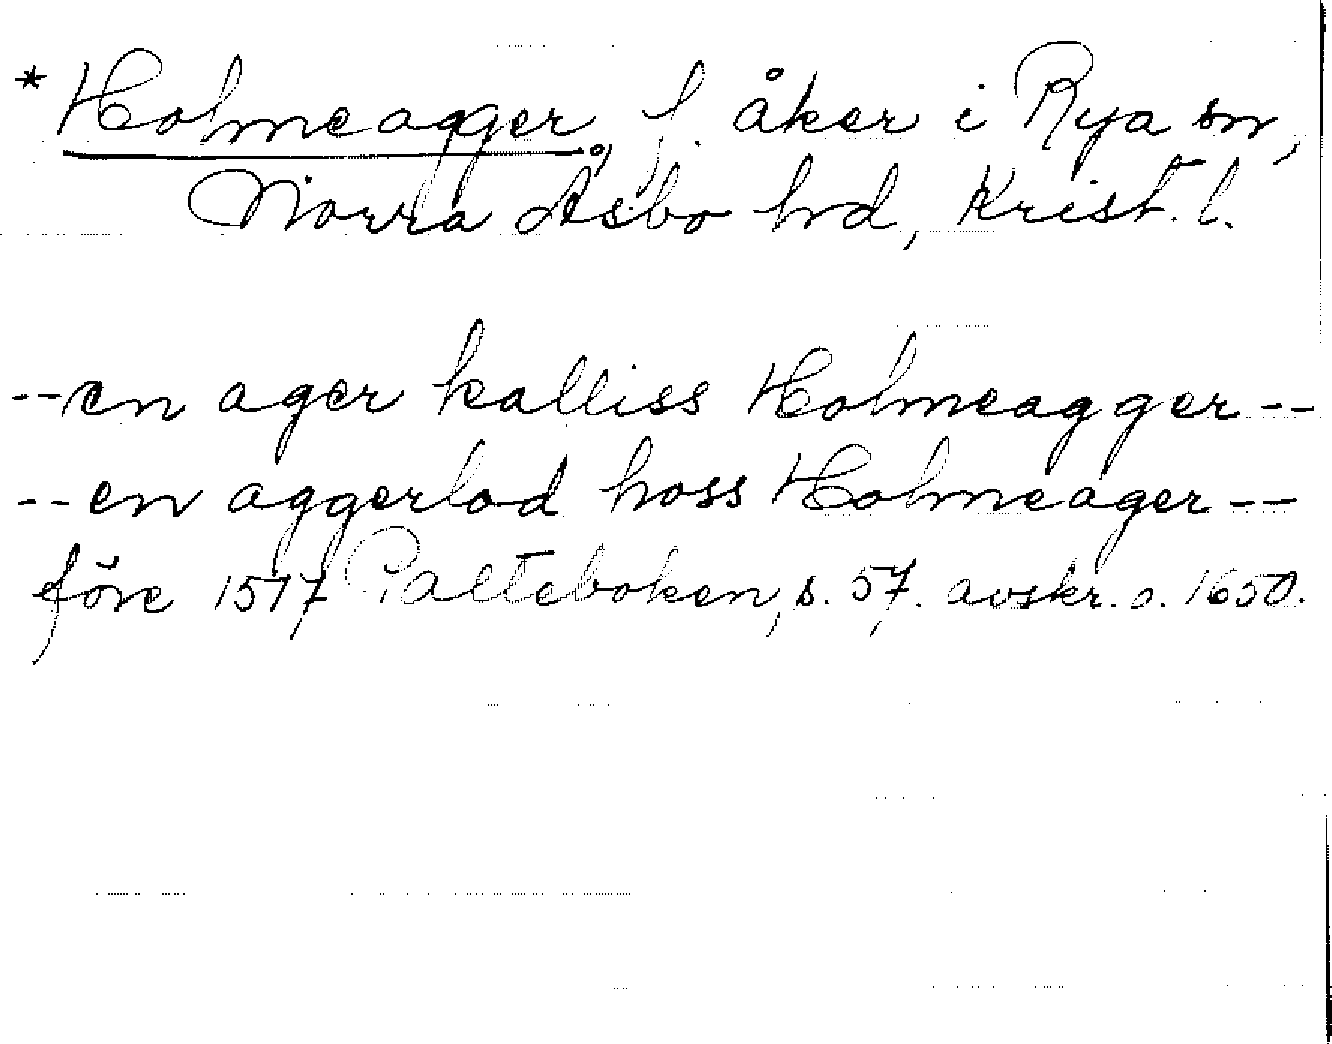 * Holmeagger, f. åker i Rya sn,
Norra Åsbo hd, Krist. l.
--en ager kalliss Holmeagger--
--en aggerlod hoss Holmeager--
före 1577 Palteboken, s. 57. avskr. o. 1650.